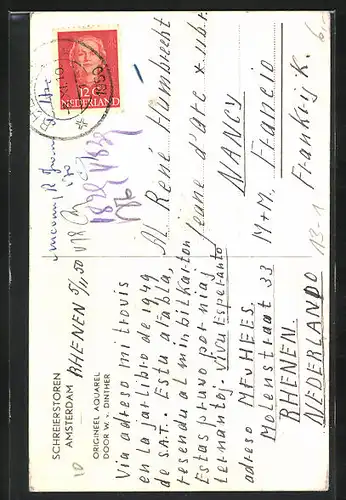 SCHREIERSTOREN
AMSTERDAM
RHENEN 5/11 50
ORIGINEEL AQUAREL
DOOR W. v. DINTHER
Via adreso mi trovis
en la jarlibro de 1949
de S.A.T. Estu afabla,
resendu al mi bildkarton
Estas pruvo por niaj
lernantoj. Vivu Esperanto
adreso MEVHEES.
Molenstraat 33
RHENEN.
NEDERLAND
12 C
NEDERLAND
1950
Al René Humbrecht
Jeune d'arc
NANCY
M+M. Francio
Frankryk.
13-1
10